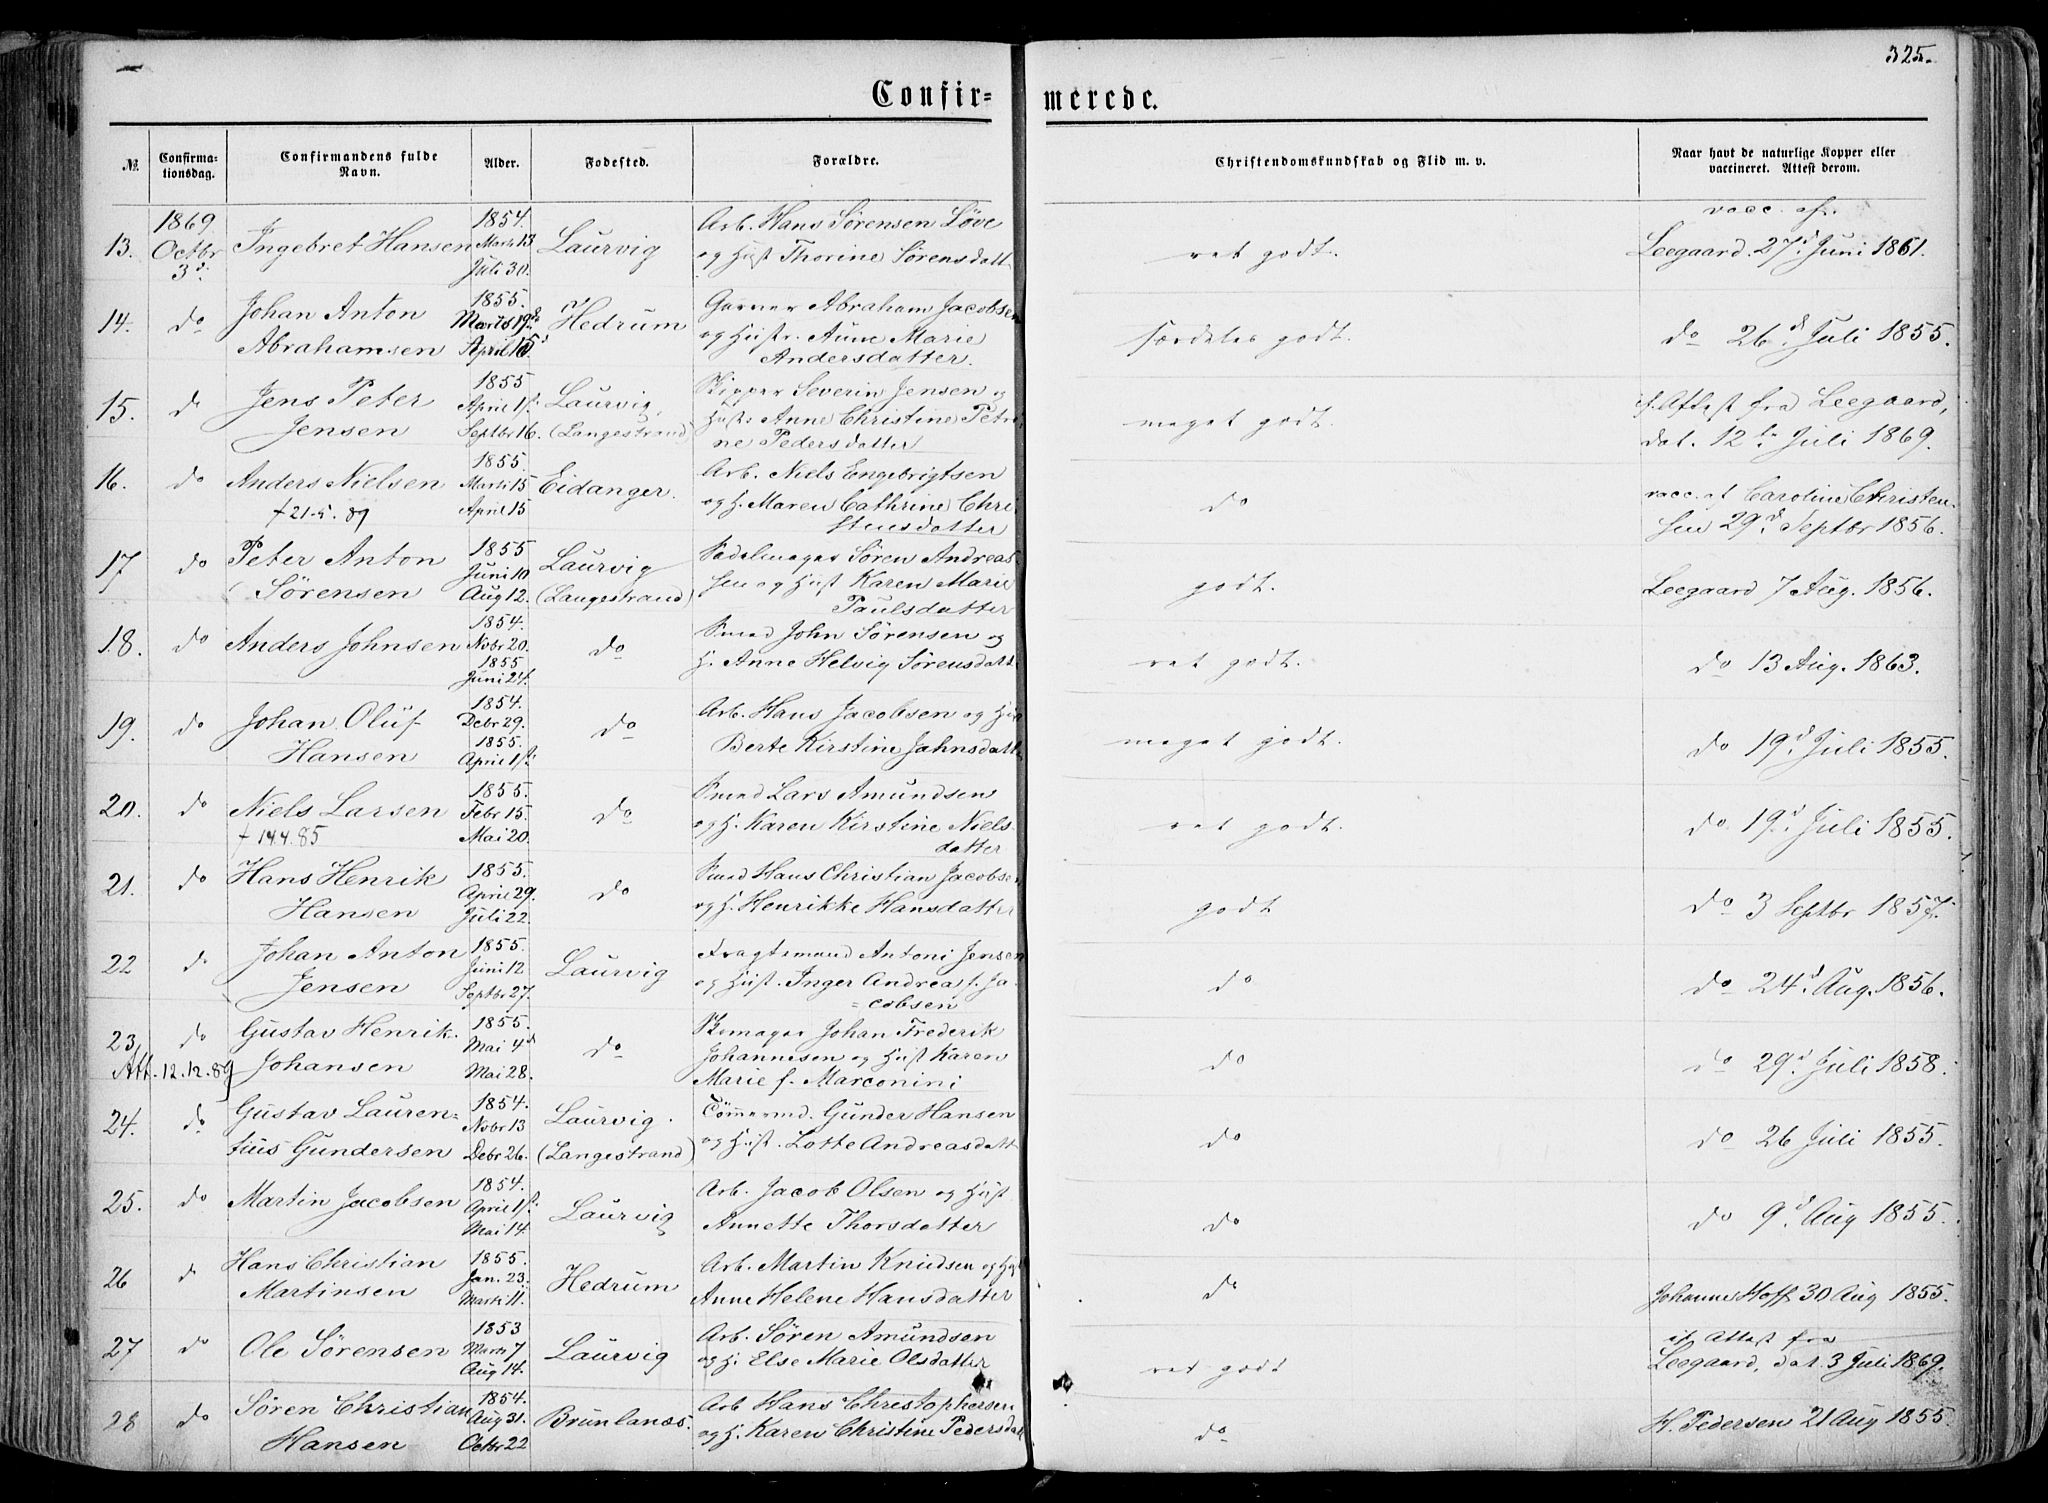 325.
Confir=
merede.
№
Confirma-
tionsdag.
Confirmandens fulde
Navn.
Alder.
Fødested.
Forældre.
Christendomskundskab og Flid m. v.
Naar havt de naturlige Kopper eller
vaccineret. Attest derom.
13.
1869.
Octbr
3d:
Ingebret Hansen
1854.
Marts 13
Juli 30.
Laurvig
Arb. Hans Sørensen Løve
og Hust Thorine Sørensdatt
ret godt.
vacc. af.
Leegaard. 27d Juni 1861.
14.
do
Johan Anton
Abrahamsen
1855.
Marts 19de
April 15d
Hedrum
Garver Abraham Jacobsen
og Hustr. Anne Marie
Andersdatter.
særdeles godt.
do 26d Juli 1855.
15.
do
Jens Peter
Jensen
1855
April 1st
Septbr 16.
Laurvig,
(Langestrand)
Skipper Severin Jensen og
Hustr Anne Christine Petri
ne Pedersdatter
meget godt.
if. Attest fra Leegaard,
dat. 12te Juli 1869.
16.
do
Anders Nielsen
† 21-5. 89
1855.
Marts 15
April 15
Eidanger.
Arb. Niels Engebrigtsen
og H. Maren Cathrine Chri
stensdatter
do
vacc. af Caroline Christen-
sen 29d Septbr 1856.
17
do
Peter Anton
Sørensen
1855
Juni 10
Aug 12.
Laurvig
(Langestrand)
Sadelmager Søren Andreas-
sen og Hust Karen Marie
Paulsdatter
godt.
Leegaard 7 Aug. 1856.
18.
do
Anders Johnsen
1854.
Novbr 20.
1855
Juni 24.
do
Smed John Sørensen og
H. Anne Helvig Sørensdatt
ret godt.
do 13 Aug. 1863.
19.
do
Johan Oluf
Hansen
1854.
Debr 29.
1855.
April 1st
do
Arb. Hans Jacobsen og Hus
Berte Kirstine Jahnsdatt
meget godt.
do 19d Juli 1855.
20.
do
Niels Larsen
† 14.4.85
1855.
Febr 15.
Mai 20.
do
Smed Lars Amundsen
og H. Karen Kirstine Niels-
datter
ret godt.
do 19d Juli 1855.
21.
do
Hans Henrik
Hansen
1855.
April 29.
Juli 22.
do
Smed Hans Christian Jacobsen
og H. Henrikke Hansdatter
godt
do 3 Septbr 1857.
22
do
Johan Anton
Jensen
1855.
Juni 12
Septbr 27.
Laurvig
Fragtemand Antoni Jensen
og Hust. Inger Andrea f. Ja-
=cobsen
do
do 24d Aug. 1856.
23,
do
Att. 12.12.89
Gustav Henrik
Johansen
1855.
Mai 4d
Mai 28.
do
Skomager Johan Frederik
Johannesen og Hust Karen
Marie f. Marconini
do
do 29d Juli 1858.
24.
do
Gustav Lauren=
tius Gundersen
1854.
Novbr 13
Debr 26.
Laurvig.
(Langestrand)
Tømmermd. Gunder Hansen
og Hust. Lotte Andreasdatt
do
do 26 Juli 1855.
25.
do
Martin Jacobsen
1854.
April 1st
Mai 14.
Laurvig
Arb. Jacob Olsen og Hust
Annette Thorsdatter
do
do 9d Aug 1855.
26
do
Hans Christian
Martinsen
1855.
Jan. 23.
Marts 11.
Hedrum
Arb. Martin Knudsen og Hust
Anne Helene Hansdatter
do
Johanne Hoff 30 Aug 1855.
27
do
Ole Sørensen
1853
Marts 7
Aug 14.
Laurvig
Arb. Søren Amundsen
og H. Else Marie Olsdatter
ret godt
if Attest fra
Leegaard, dat. 3 Juli 1869.
28
do
Søren Christian
Hansen
1854.
Aug 31.
Octbr 22
Brunlanæs.
Arb Hans Christophersen
og H. Karen Christine Pedersdatt
do
H. Pedersen 21 Aug 1855.